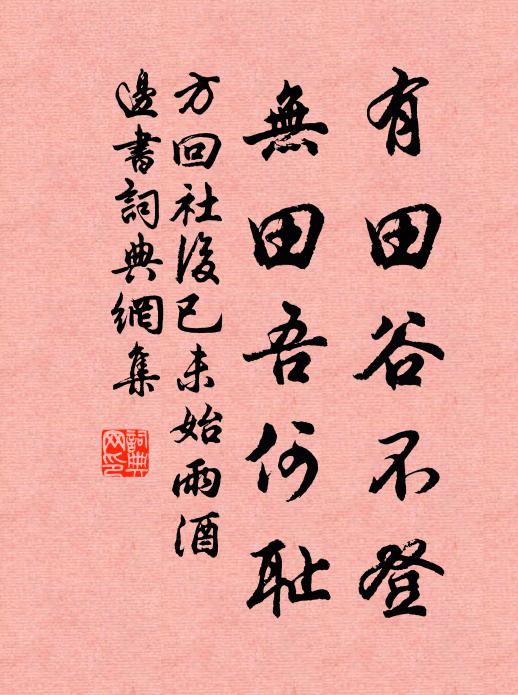 有田谷不登
無田吾何耻
方回社後已未始雨酒
邊書詞典網集
詞典
网印